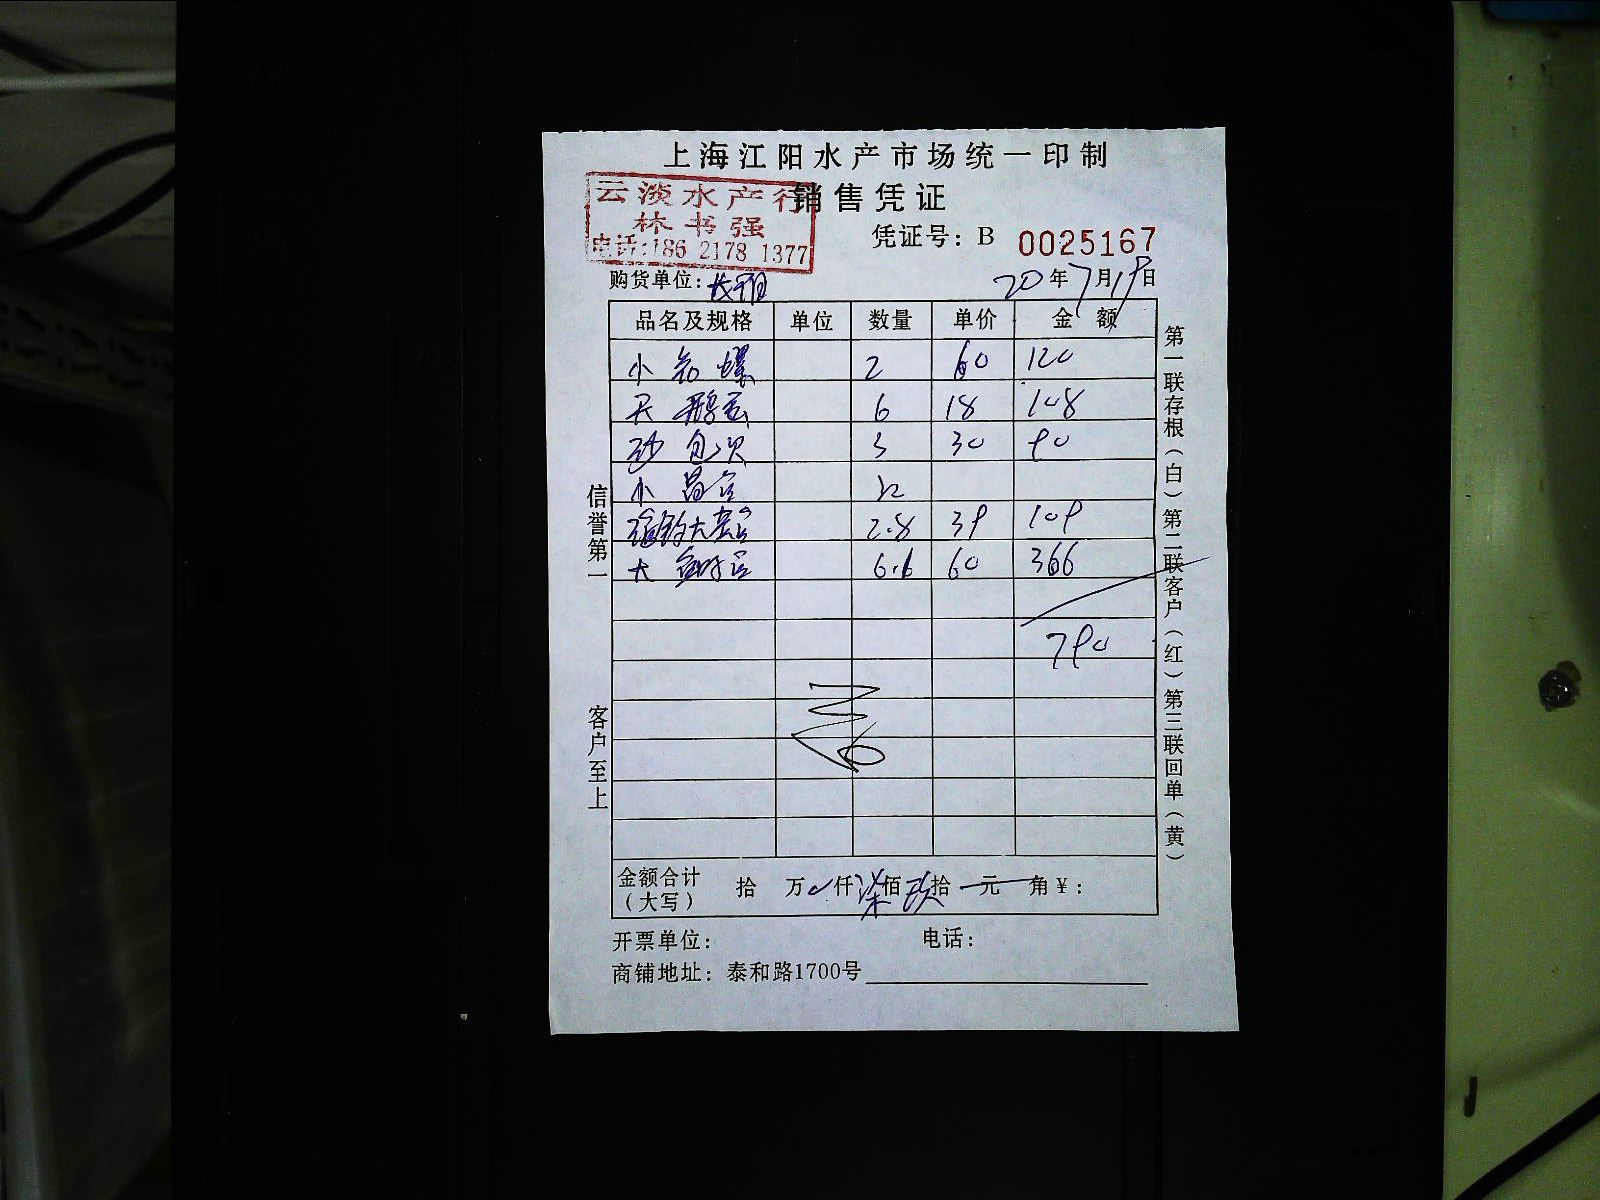 上海江阳水产市场统一印制
销售凭证
云淡水产行
林书强
电话:186 2178 1377
凭证号: B 0025167
购货单位:
20年7月19日
品名及规格 单位 数量 单价 金额
小 螺 2 60 120
6 18 108
沙 3 30 90
小
2.8 39 109
大 6.6 60 366
790
金额合计(大写) 拾 万 仟柒佰玖拾 元 角¥:
开票单位: 电话:
商铺地址: 泰和路1700号
信誉第一
客户至上
第一联存根(白)第二联客户(红)第三联回单(黄)